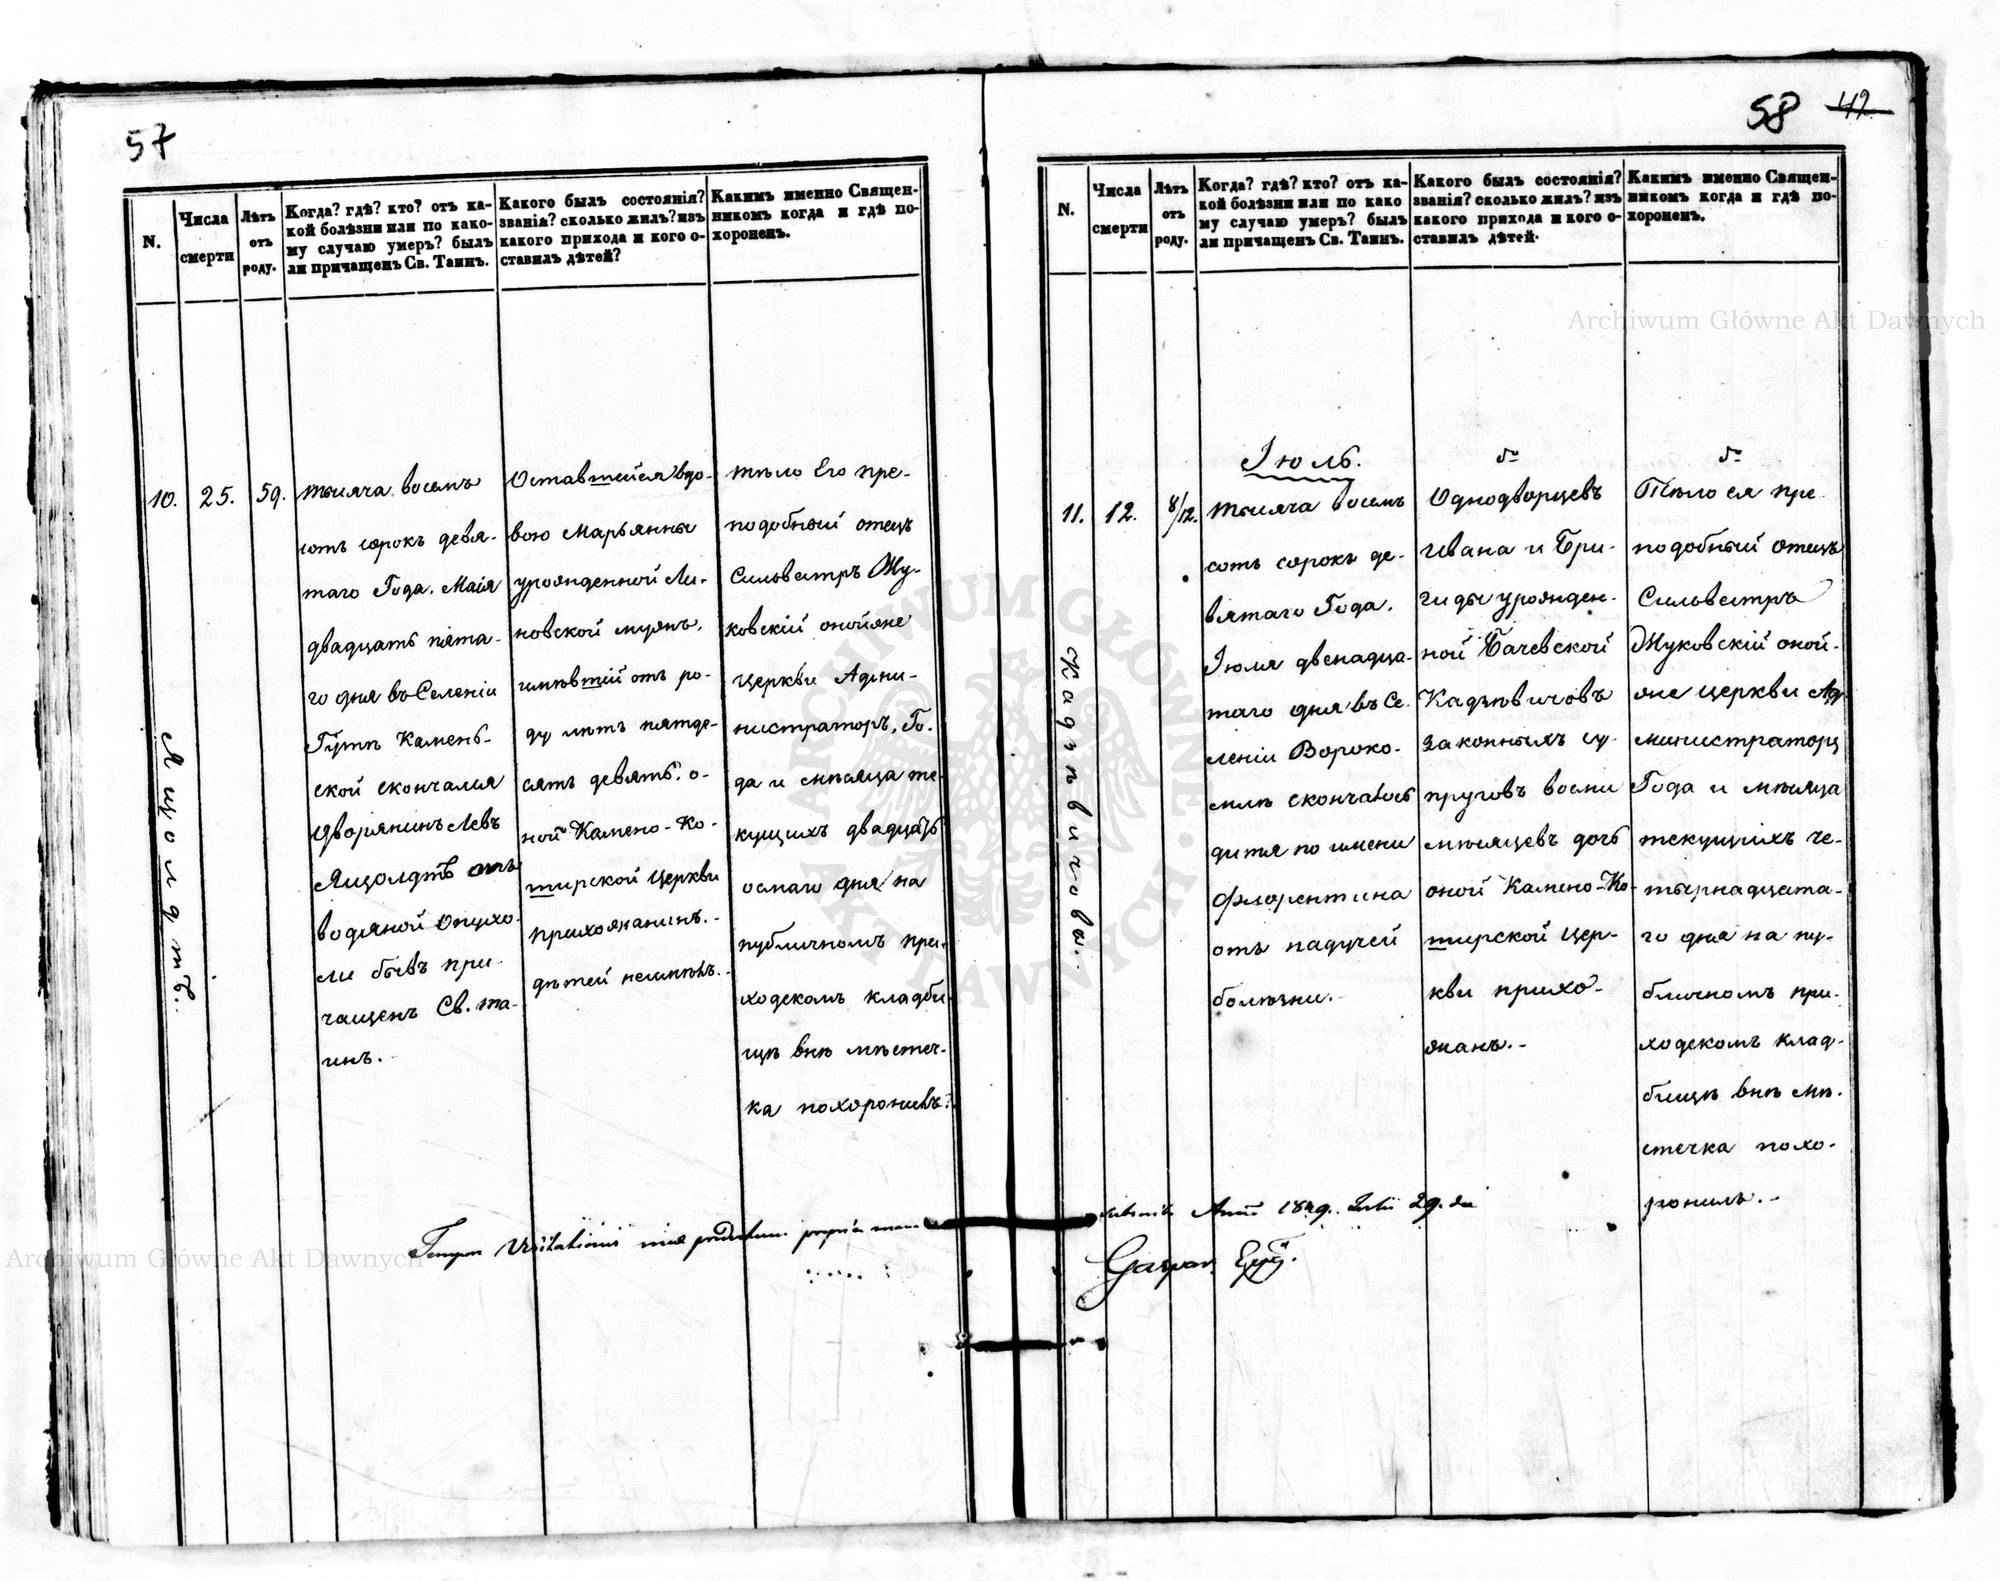 57
N.
Числа
смерти
Лѣтъ
отъ
роду.
Когда? гдѣ? кто? отъ ка-
кой болѣзни или по како-
му случаю умеръ? былъ
ли причащенъ Св. Таинъ.
Какого былъ состоянія?
званія? сколько жилъ? изъ
какого прихода и кого о-
ставилъ дѣтей?
Какимъ именно Священ-
никомъ когда и гдѣ по-
хороненъ.
10.
25.
59.
Ящолдтъ.
тысяча восемъ
сотъ сорокъ девя-
таго Года. Маія
двадцать пята-
го дня въ Селеніи
Гутѣ Камень-
ской скончался
дворянинъ Левъ
Ящолдтъ отъ
водяной опухо-
ли бывъ при-
чащенъ Св. та-
инъ.
Оставшейся вдо-
вою Марьянны
урожденной Ли-
новской мужъ,
имѣвшій отъ ро-
ду лѣтъ пятде-
сятъ девять, о-
ной Камено-Ко-
ширской церкви
прихожанинъ.-
дѣтей неимѣлъ.-
тѣло Его пре-
подобный отецъ
Сильвестръ Жу-
ковскій онойже
церкви Адми-
нистраторъ, Го-
да и мѣсяца те-
кущихъ двадцать
осмаго дня на
публичномъ при-
ходскомъ кладби-
щѣ внѣ мѣстеч-
ка похоронилъ.
58 42
N.
Числа
смерти
Лѣтъ
отъ
роду.
Когда? гдѣ? кто? отъ ка-
кой болѣзни или по како
му случаю умеръ? былъ
ли причащенъ Св. Таинъ.
Какого былъ состоянія?
званія? сколько жилъ? изъ
какого прихода и кого о-
ставилъ дѣтей.
Какимъ именно Священ-
никомъ когда и гдѣ по-
хороненъ.
11.
12.
8/12.
Кадѣвичовы.-
Іюль.
тысяча восемъ
сотъ сорокъ де-
вятаго Года.
Іюля двенадца-
таго дня въ Се-
леніи Вороко-
млѣ скончалось
дитя по имени
Флорентина
отъ падучей
болѣзни.-
Однодворцевъ
Ивана и Бри-
гиды урожден-
ной Бачевской
Кадѣвичовъ
законныхъ су-
пруговъ восми
мѣсяцевъ дочь
оной Камено-Ко-
ширской цер-
кви прихо-
жанъ.-
Тѣло ея пре-
подобный отецъ
Сильвестръ
Жуковскій оной-
же церкви Ад-
министраторъ
Года и мѣсяца
текущихъ че-
тырнадцата-
го дня на пу-
бличномъ при-
ходскомъ клад-
бищѣ внѣ мѣ-
стечка похо-
ронилъ.-
Visitationis propria manu Anni 1849. Julii 29. die
Gaspar
Archiwum Główne Akt Dawnych
Archiwum Główne Akt Dawnych
ARCHIWUM GŁÓWNE AKT DAWNYCH